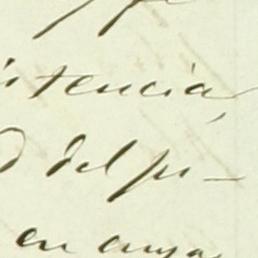 istencia,
d del pi-
en cuya